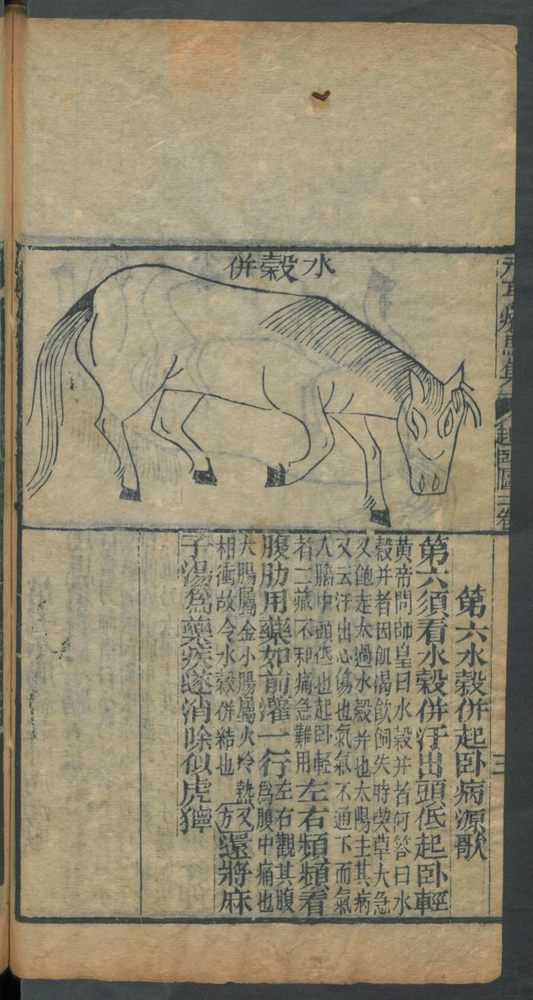 水穀併
元亨療馬集
起臥圖三卷
三
第六水穀併起卧病源歌
第六須看水穀併汗出頭低起卧輕
黃帝問師皇曰水穀并者何答曰水
穀并者因飢渴飲飼失時喫草大急
又飽走太過水穀并也太陽主其病
又云汗出心傷也氣氣不通下而氣
入膓中頭低也起卧輕
者二藏不和痛急難用
左右頻頻看
腹肋用藥如前灌一行
左右觀其腹
爲腹中痛也
大腸屬金小腸屬火冷熱又
相衝故令水穀併結也
方
還將麻
子湯爲藥疾遂消除似虎獰